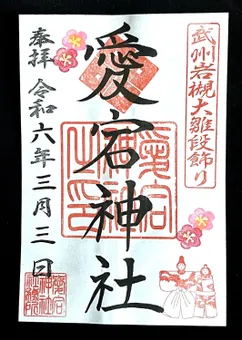 武州岩槻大雛段飾り
愛宕神社
奉拝
令和六年三月三日
愛宕神社之印